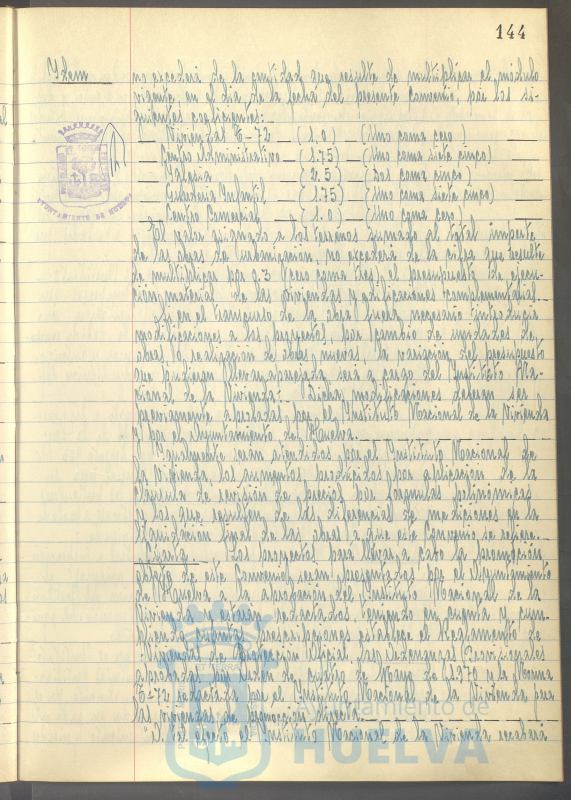 144
Idem
no excederá de la cantidad que resulte de multiplicar el módulo
vigente, en el día de la fecha del presente Convenio, por los si-
guientes coeficientes:
Viviendas T-72 (1,0) (Uno coma cero)
Centro Administrativo (1.75) (Uno coma siete cinco)
Iglesia (2.5) (Dos coma cinco)
Guardería Infantil (1.75) (Uno coma siete cinco)
Centro Comercial (1.0) (Uno coma cero)
El valor asignado a los terrenos sumado al total importe
de las obras de urbanización, no excederá de la cifra que resulte
de multiplicar por 0.3 (cero coma tres), el presupuesto de ejecu-
ción material de las viviendas y edificaciones complementarias.
Si en el transcurso de la obra fuera necesario introducir
modificaciones a los proyectos, por cambio de unidades de
obras o realización de obras nuevas, la variación del presupuesto
que pudieran llevar aparejada será a cargo del Instituto Na-
cional de la Vivienda. Dichas modificaciones deberán ser
previamente aprobadas por el Instituto Nacional de la Vivienda
y por el Ayuntamiento de Huelva.
Igualmente serán atendidos por el Instituto Nacional de
la Vivienda, los aumentos producidos por aplicación de la
cláusula de revisión de precios por fórmulas polinómicas
o los que resulten de las diferencias de mediciones en la
liquidación final de las obras a que este Convenio se refiere.
Cuarta. Los proyectos para llevar a cabo la promoción
objeto de este Convenio, serán presentados por el Ayuntamiento
de Huelva a la aprobación del Instituto Nacional de la
Vivienda y estarán redactados, teniendo en cuenta y cum-
pliendo cuantas prescripciones establece el Reglamento de
Viviendas de Protección Oficial, las Ordenanzas Provisionales
aprobadas por Orden de cuatro de Mayo de 1.970 y la Norma
T-72 redactada por el Instituto Nacional de la Vivienda para
las viviendas de promoción directa.
A tal efecto el Instituto Nacional de la Vivienda recabará
AYUNTAMIENTO DE HUELVA
Ayuntamiento de
HUELVA